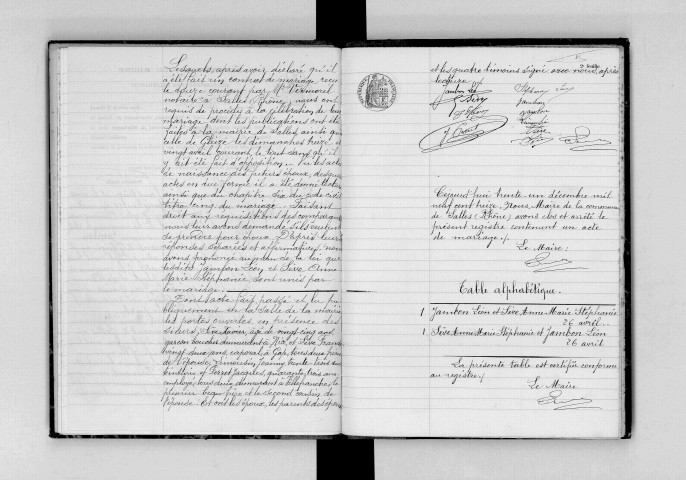 Lesquels, après avoir déclaré qu'il
a été fait un contrat de mariage reçu
le douze courant par Me Vermorel
notaire à Salles (Rhône), nous ont
requis de procéder à la célébration de leur
mariage dont les publications ont été
faites à la mairie de Salles, ainsi qu'à
celle de Gleizé les dimanches treize et
vingt avril courant, le tout sans qu'il
y ait été fait d'opposition. Vu les actes
de naissance des futurs époux, desquels
actes en due forme il a été donné lecture
ainsi que du chapitre six du code civil
titre cinq du mariage. Faisant
droit aux réquisitions des comparants
nous leur avons demandé s'ils veulent
se prendre pour époux. D'après leurs
réponses séparées et affirmatives, nous
avons prononcé au nom de la loi que
lesdits Jambon Léon et Sève Anne
Marie Stéphanie sont unis par
le mariage.
Dont acte fait, passé et lu pu
bliquement en la salle de la mairie
les portes ouvertes, en présence des
sieurs, Sève âgé de vingt cinq ans,
garçon boucher demeurant à et Sève
vingt deux ans, caporal à Gap, tous deux frères
de l'épouse, Limousin trente
Jacques, quarante trois ans
employé tous deux demeurant à Villefranche, le
premier beau-frère et le second cousin de
l'épouse. Et ont les époux, les parents des époux
et les quatre témoins signé avec nous, après
lecture
Jambon
Sève
Jambon
Aujourd'hui trente-un décembre mil
neuf cent treize, Nous, Maire de la commune
de Salles (Rhône), avons clos et arrêté le
présent registre contenant un acte
de mariage./.
Le Maire:
Table alphabétique.
1 Jambon Léon et Sève Anne-Marie Stéphanie
26 avril.
1 Sève Anne Marie Stéphanie et Jambon Léon
26 avril
La présente table est certifiée conforme
au registre./.
Le Maire